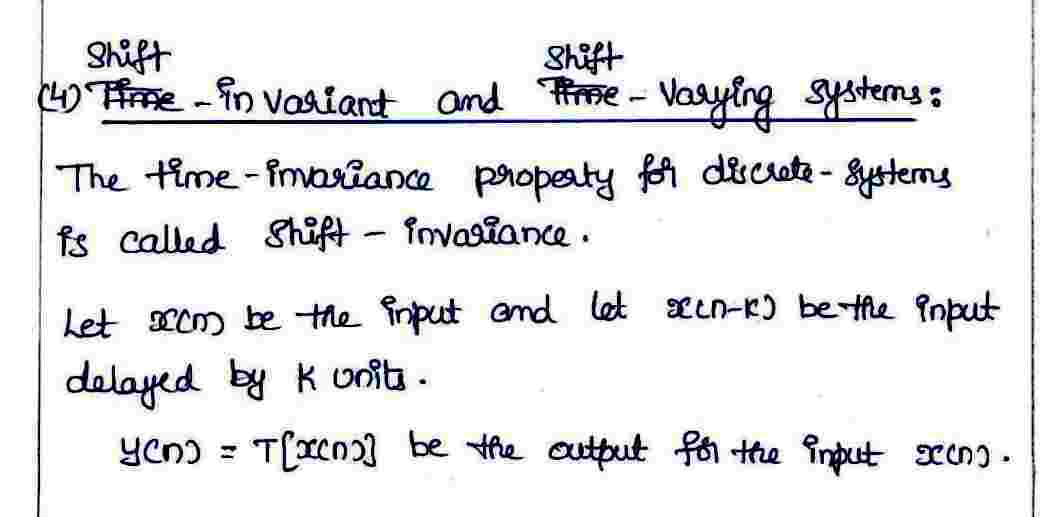 Shift Shift
(4) Time - invariant and Time - Varying systems:
The time - invariance property for discrete - systems
is called shift - invariance.
Let x(n) be the input and let x(n-k) be the input
delayed by K units.
y(n) = T[x(n)] be the output for the input x(n).